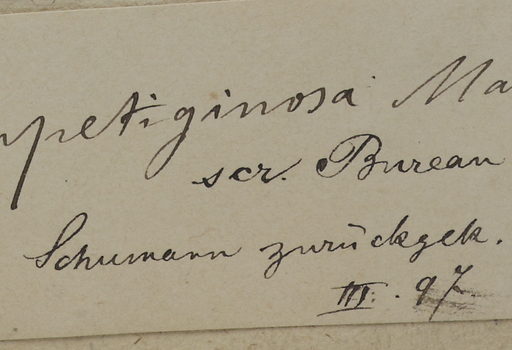 mpetiginosa Ma
scr. Bureau
Schumann zurückgek.
III. 97